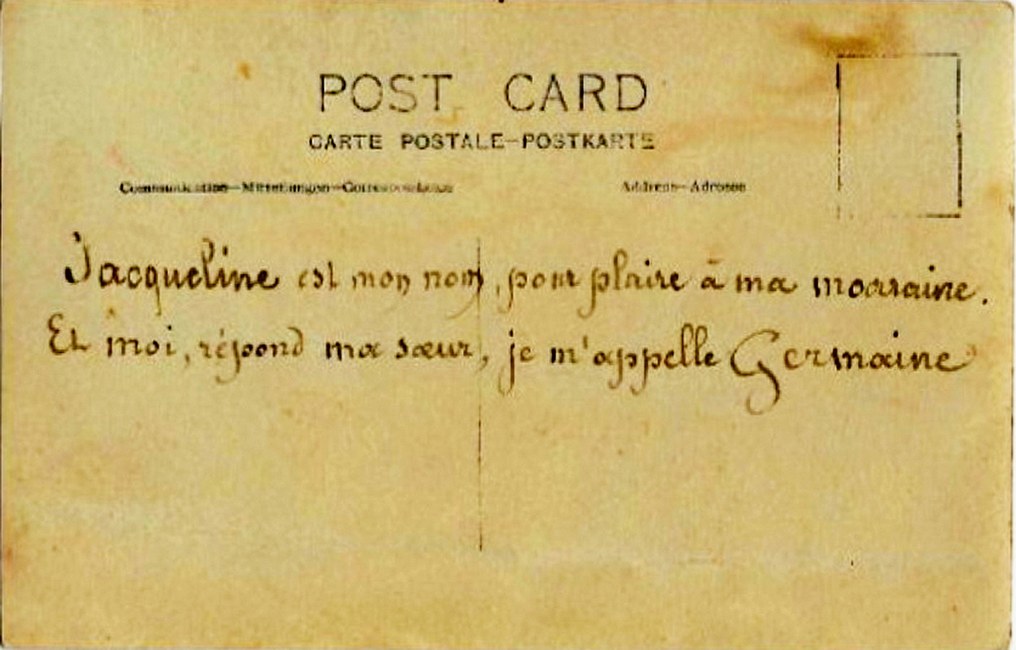 POST CARD
CARTE POSTALE-POSTKARTE
Communication-Mitteilungen-Correspondance
Address-Adresse
Jacqueline est mon nom, pour plaire à ma marraine.
Et moi, répond ma sœur, je m'appelle Germaine